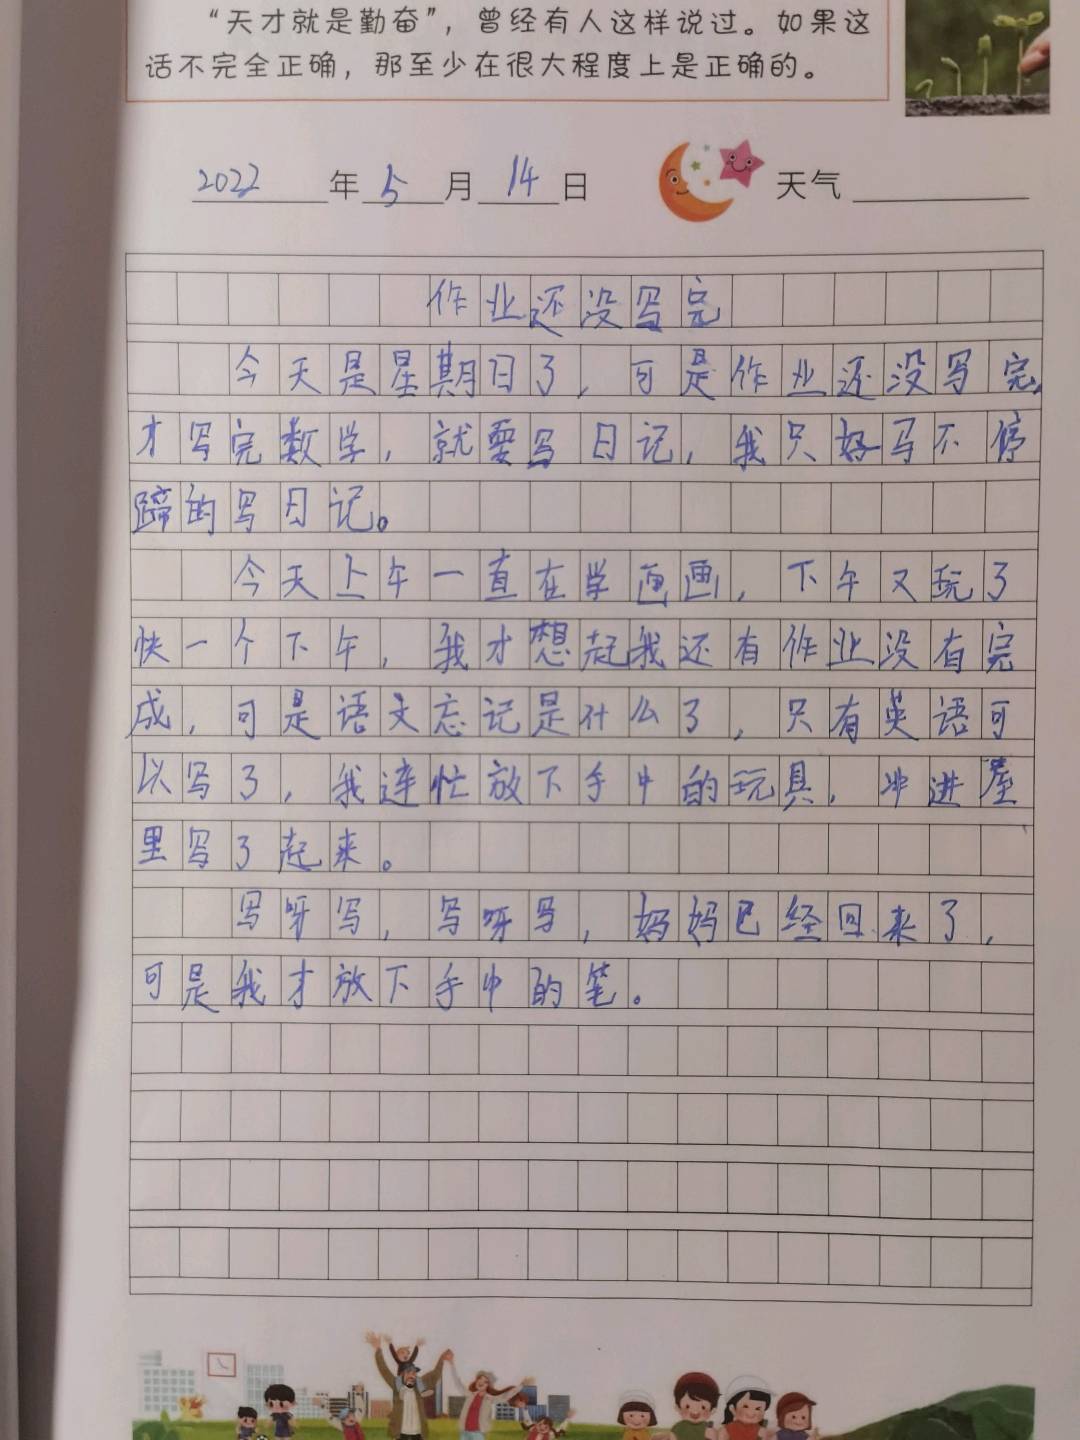 “天才就是勤奋”，曾经有人这样说过。如果这
话不完全正确，那至少在很大程度上是正确的。
2022年5月14日 天气
作业还没写完
今天是星期日了，可是作业还没写完，
才写完数学，就要写日记，我只好马不停
蹄的写日记。
今天上午一直在学画画，下午又玩了
快一个下午，我才想起我还有作业没有完
成，可是语文忘记是什么了，只有英语可
以写了，我连忙放下手中的玩具，冲进屋
里写了起来。
写呀写，写呀写，妈妈已经回来了，
可是我才放下手中的笔。